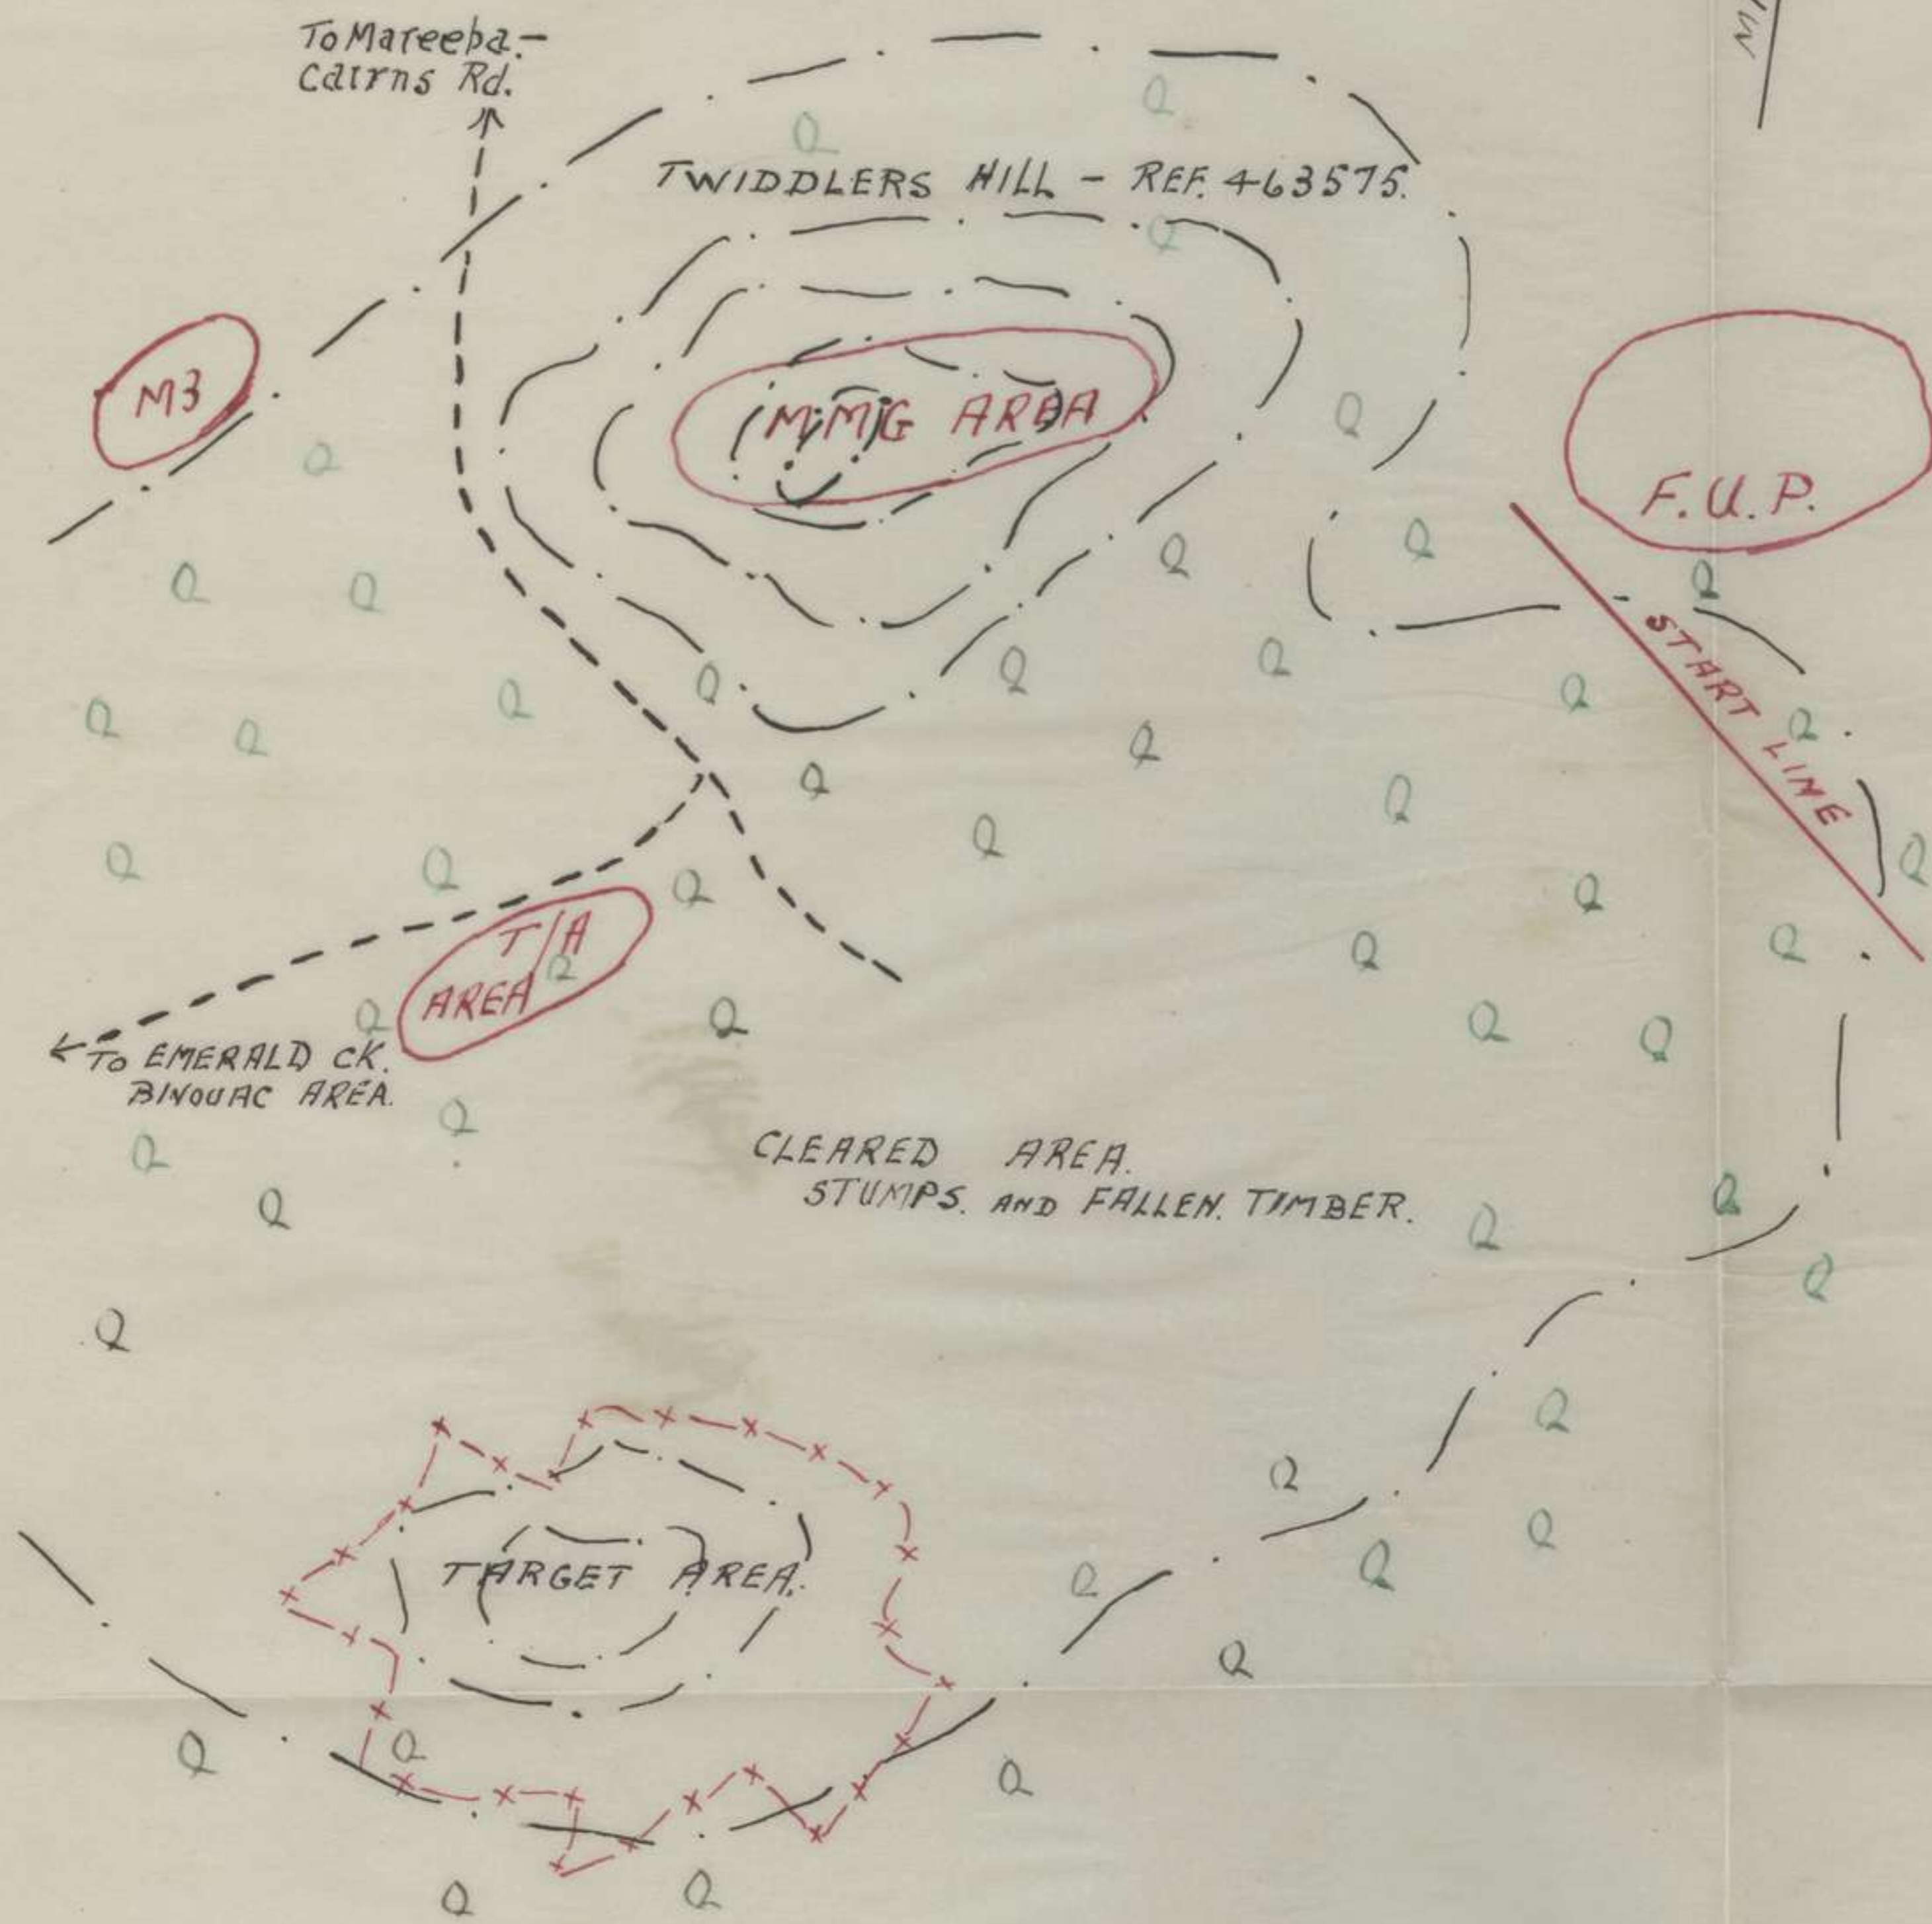 To Mareeba.-
Cairns Rd.
TWIDDLERS HILL - REF. 463575.
M3
MMG AREA
F.U.P.
START LINE
T/A
AREA
TO EMERALD CK.
BIVOUAC AREA.
CLEARED AREA.
STUMPS. AND FALLEN. TIMBER.
TARGET AREA.